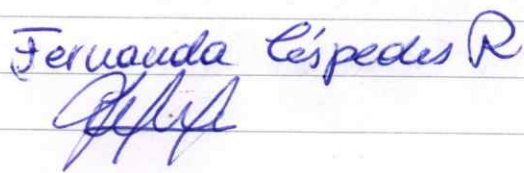 Fernanda Céspedes R